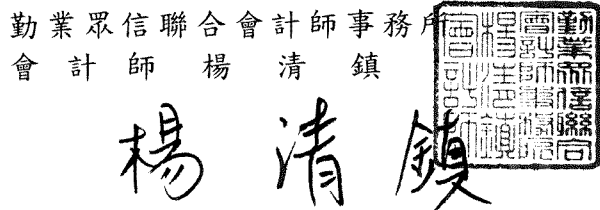 勤業眾信聯合會計師事務所
會計師 楊清鎮
楊清鎮
勤業眾信聯合
會計師事務所
楊清鎮
會計師